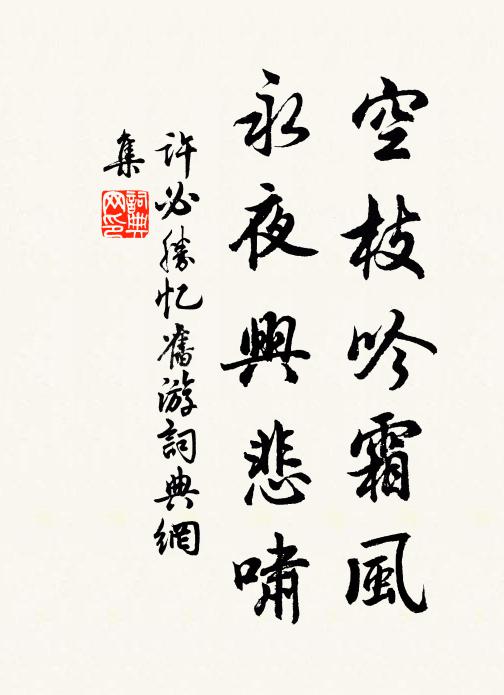 空枝吟霜風
永夜興悲嘯
許必勝忆舊游詞典網
集
詞典
网印